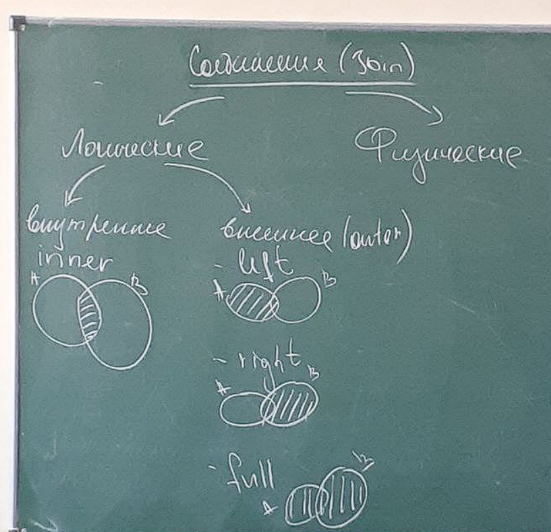 Соединения (Join)
Логические
Физические
внутренние
inner
A
B
внешнее (outer)
- left
A
B
- right
A
B
- full
A
B